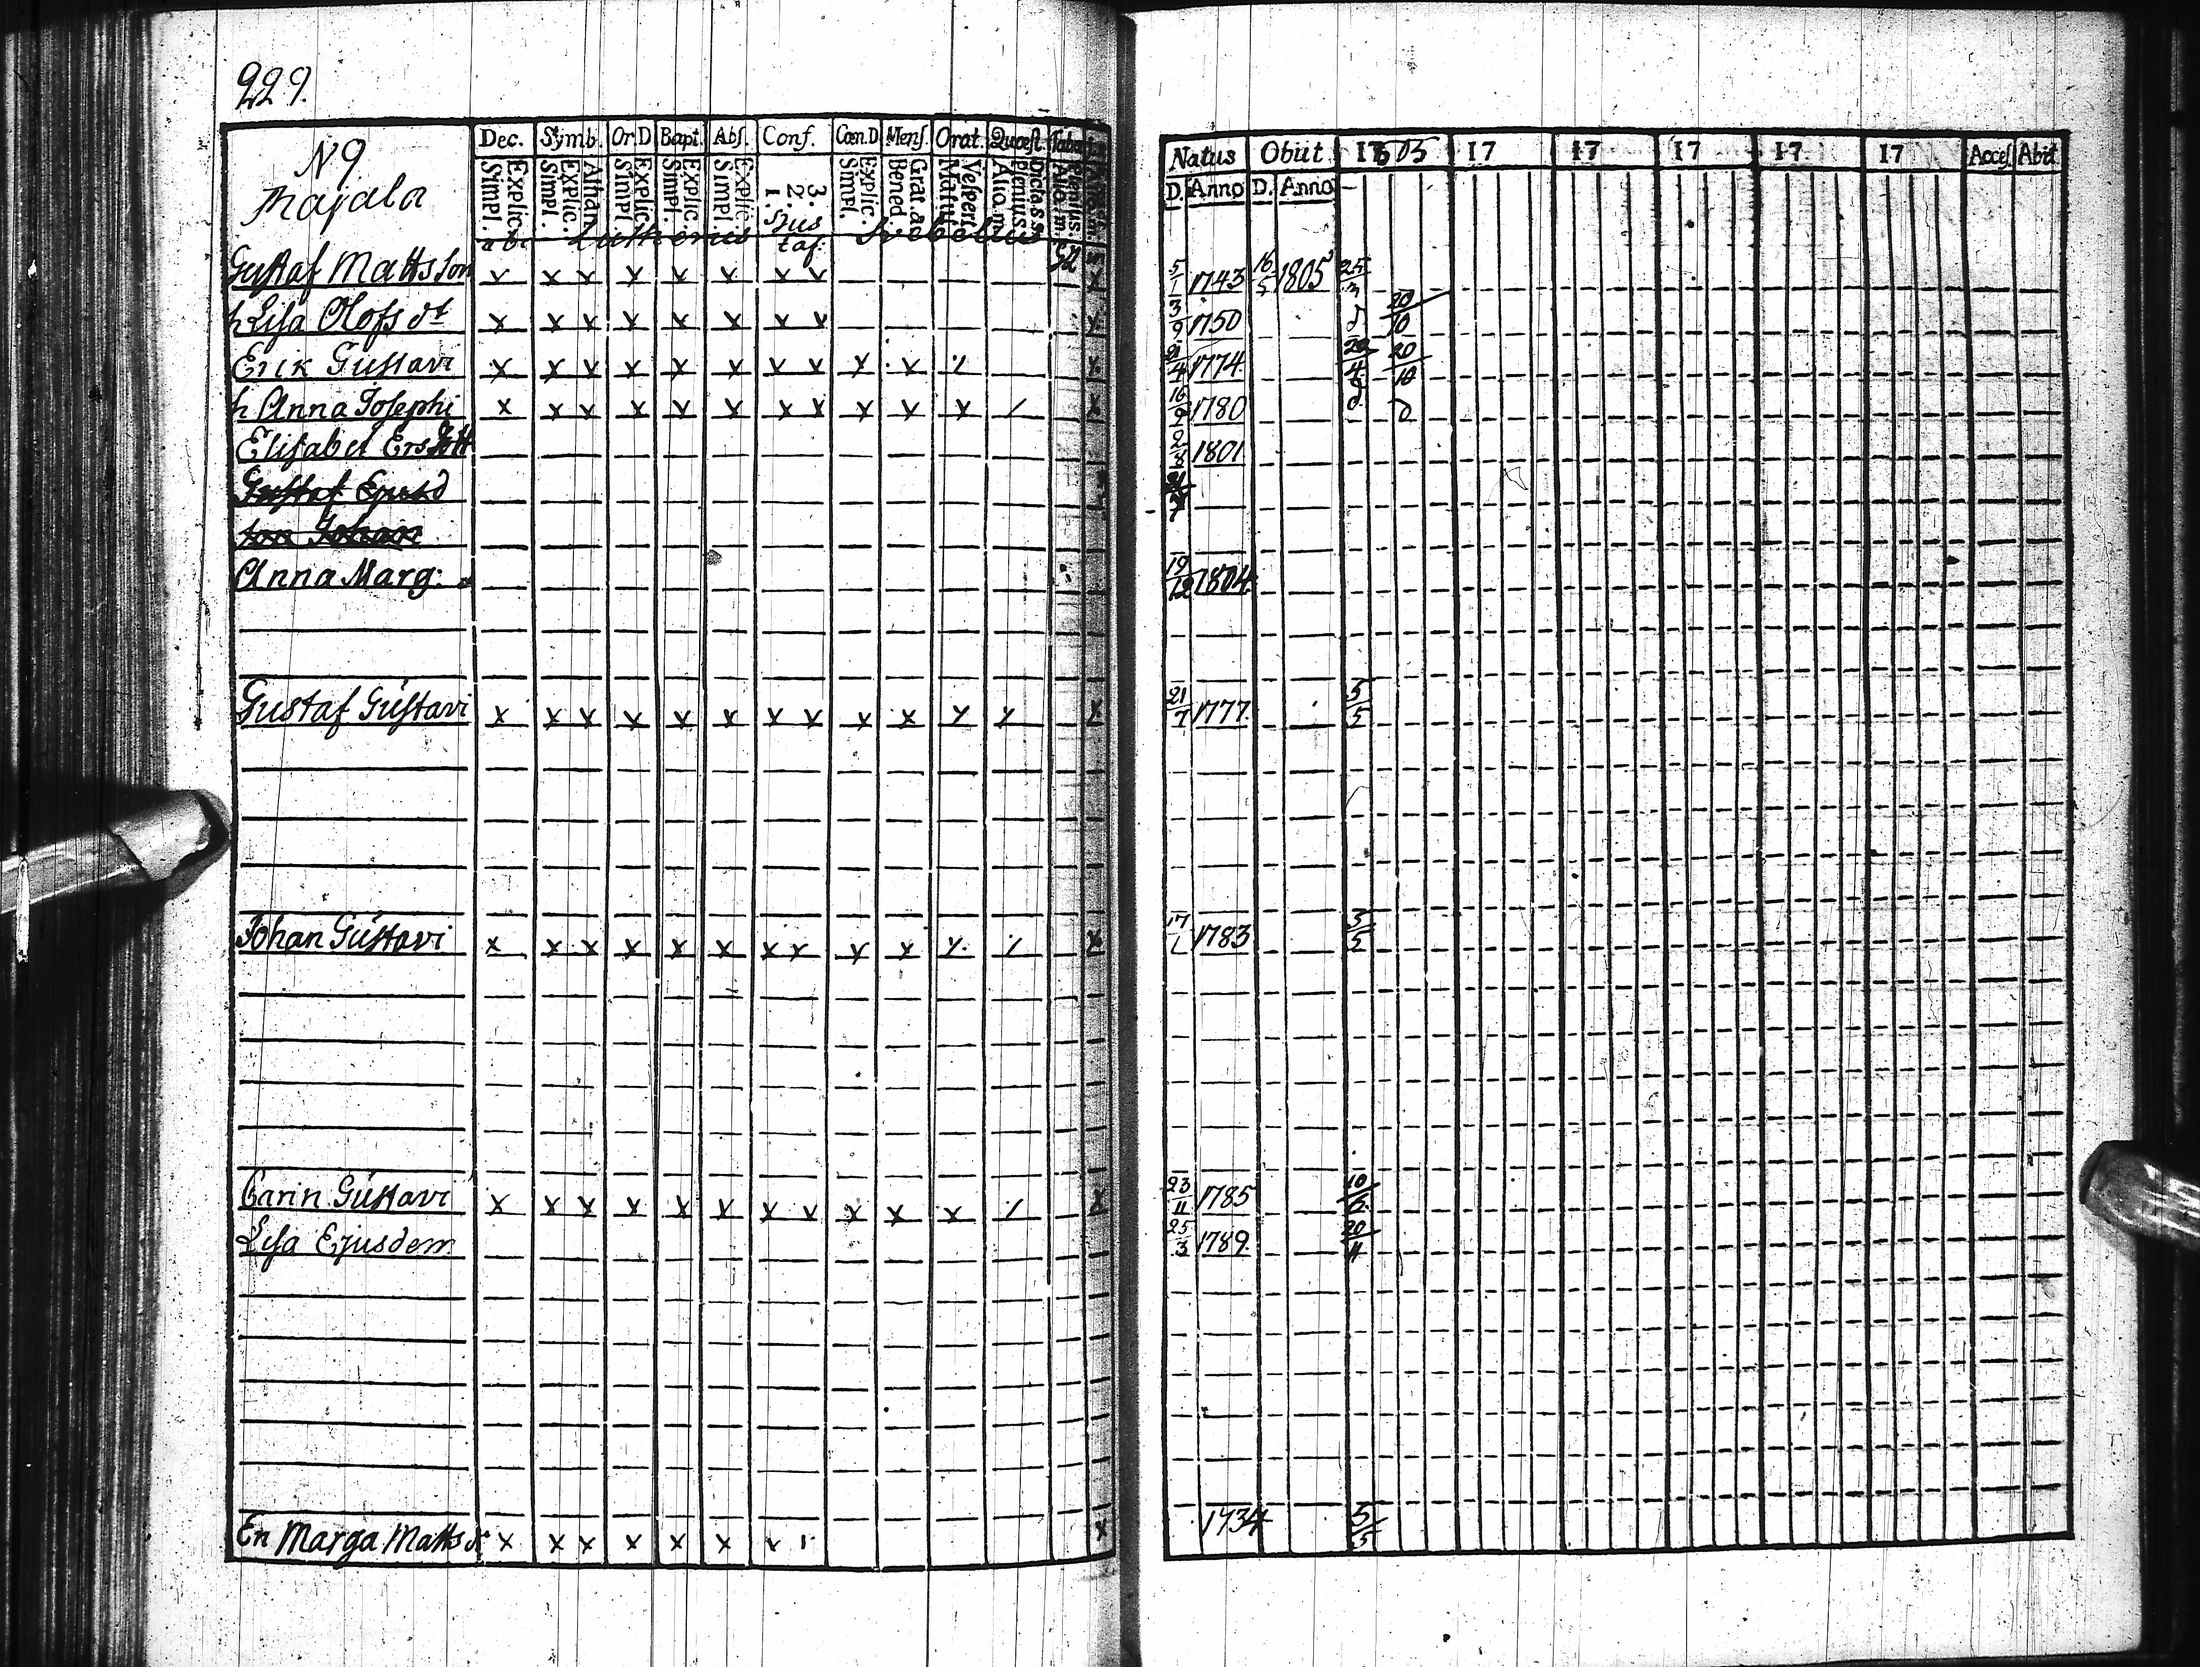 229.
N9
Majala
Dec. Symb. Or.D Bapt. Abs. Conf. Cœn.D Mens. Orat. Quæst.
Explic. Simpl. Athan. Explic. Simpl. Explic. Simpl. Explic. Simpl. Explic. Simpl. 3. 2. 1. Explic. Simpl. Grat. ac Bened. Vespert. Matut. Dicta S.S. Plenius. Alio.m.
a b c Lutherus Hus taf: Svebelius
Natus Obiit 1805 17 17 17 17 17 Acces. Abit
D. Anno D. Anno
Gustaf Mattsson x x x x x x x x x 5/1 1743 16/5 1805 25/3
h Lisa Olofs dr x x x x x x x x x 3/9 1750 d 20/10
Erik Gustavi x x x x x x x x x x 1774 20/4 20/10
h Anna Josephi x x x x x x x x x x x 1780 d d
Elisabet Ers dott 1801
Gustaf Ejusd
son Johan
Anna Marg: 19/12 1804
Gustaf Gustavi x x x x x x x x x x x x x 21/7 1777 5/5
Johan Gustavi x x x x x x x x x x x x 17/1 1783 5/5
Carin Gustavi x x x x x x x x x x x x 23/11 1785 10/6
Lisa Ejusdem 25/3 1789 20/11
En Marga Matts dr x x x x x x x x 1734 5/5